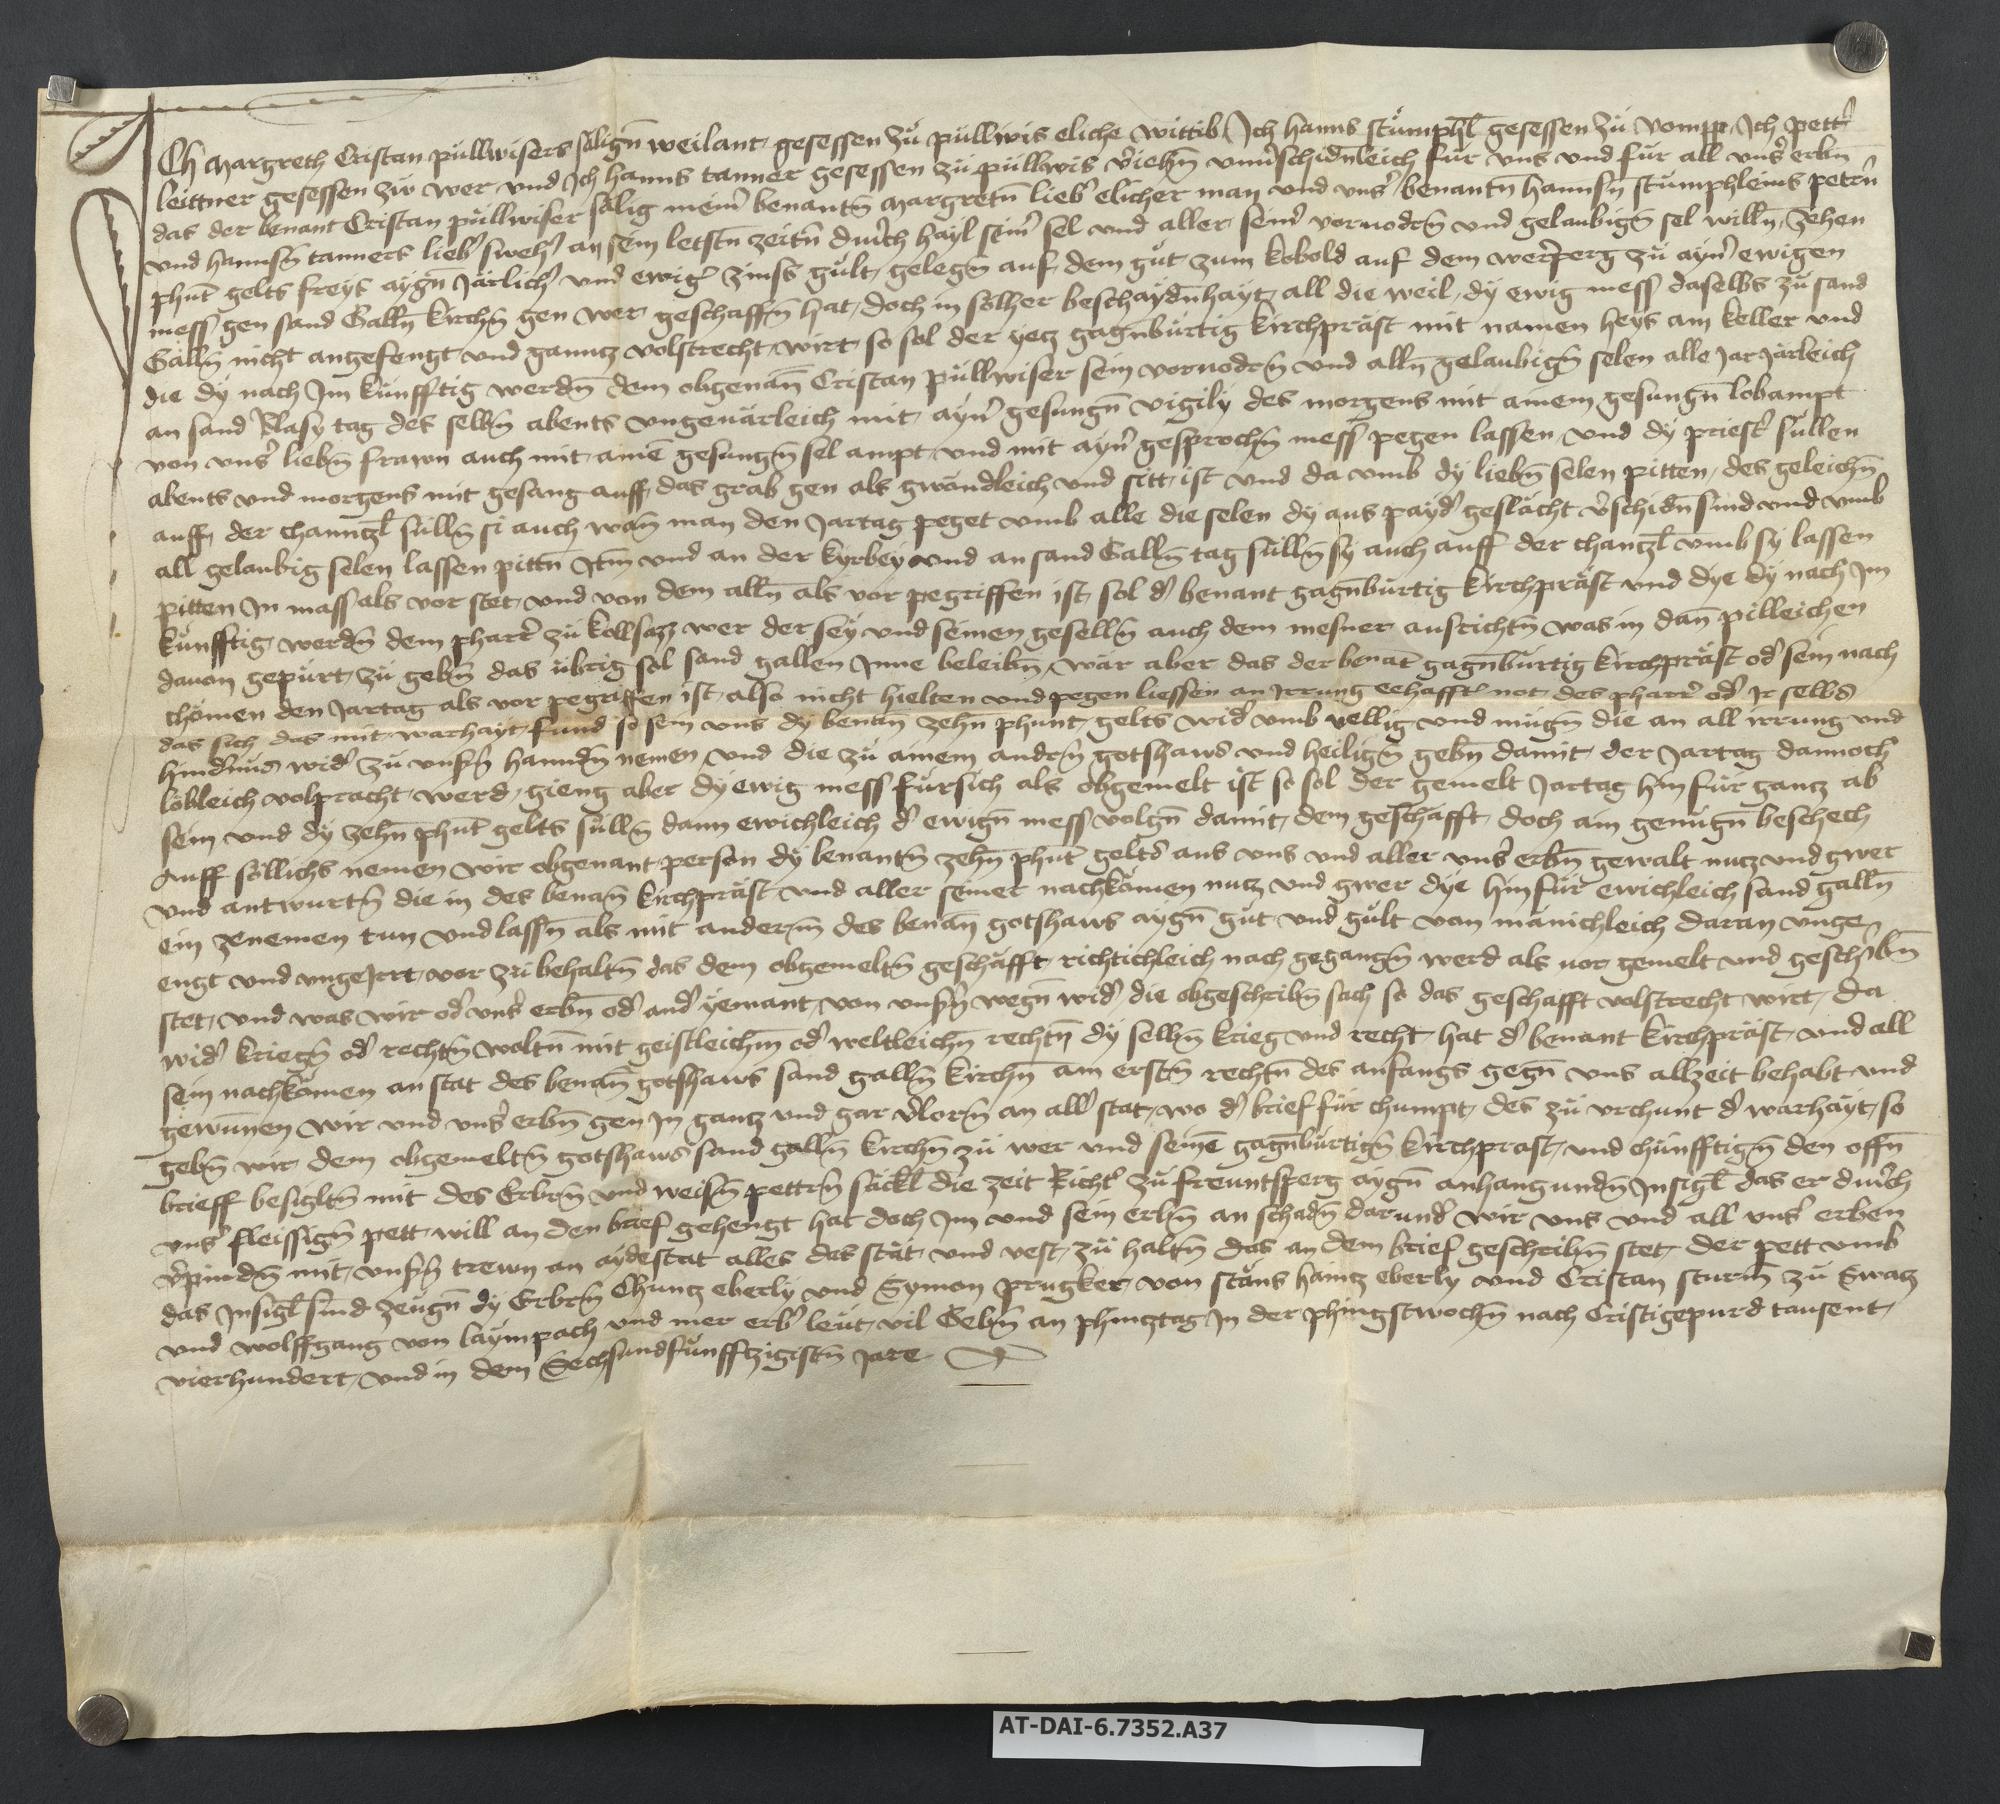 Ich Margreth Cristan püllwisers säligñ weilant gesessen zu püllwis eliche wittib Ich hanns stümphl gesessen zu vomp Ich pettr
leittner gesessen zw wer vnd Ich hanns tanner gesessen zu püllwis vriehñ vnuerschidñleich für vns vnd für all vnsr erbñ
das der benant Cristan püllwiser sälig meinr benantñ Margretñ liebr elicher man vnd vnsr benantñ hannsñ stümphleins petrñ
vnd hannsñ tanners liebr swehr an sein letstñ zeitñ durch hayl seinr sel vnd aller seinr voruodrñ vnd gelaubigñ sel willñ zehen
phunt gelts freys aygñ Järlichr vnd ewigr zinss gült gelegñ auf dem gut zum kobold auf dem werperg zu aynr ewigen
mess gen sand Gallñ kirchñ gen wer geschaffñ hat doch in sölher beschaydñhayt all die weil dy ewig mess daselbs zu sand
Gallñ nicht angefengt vnd ganntz volstrecht wirt so sol der yetz gagñbürtig kirchpräst mit namen heys am keller vnd
die dy nach Im künfftig werdñ dem obgenañ Cristan püllwiser sein voruodrñ vnd allñ gelaubigñ selen alle Jar Järleich
an sand Blasy tag des selbñ abents vngeuärleich mit aynr gesungñ vigily des morgens mit ainem gesungñ lobampt
von vnsr liebñ frawn auch mit aineṁ gesungñ sel ampt vnd mit aynr gesprochñ mess pegen lassen vnd dy priestr süllen
abents vnd morgens mit gesang auff das grab gen als gwöndleich vnd sitt ist vnd da vmb dy liebñ selen pitten des geleichñ
auff der channtzl süllñ si auch wañ man den Jartag peget vmb alle die selen dy aus paydr geslächt vrschidñ sind vnd vmb
all gelaubig selen lassen pittñ Itm̃ vnd an der kyrbey vnd an sand Gallñ tag süllñ sy auch auff der chantzl vmb sy lassen
pitten In mass als vor stet vnd von dem allñ als vor pegriffen ist sol dr benant gagñbürtig kirchpräst vnd dye dy nach Im
künfftig werdñ dem pharrr zu kollsazz wer der sey vnd seinen gesellñ auch dem mesner ausrichtñ was in dañ pilleichen
dauon gepürt zu gebñ das übrig sol sand gallen Inne beleibñ wär aber das der benañt gagñbürtig kirchpräst odr sein nach
chömen den Jartag als vor pegriffen ist also nicht hielten vnd pegen liessen an Irrung eehafftr not des pharrr odr Ir selbs
das sich das mit warhayt fund so sein vns dy benañ zehñ phunt gelts widr vmb vellig vnd mügñ die an all irrung vnd
hindrnus widr zu vnsrñ hanndñ nemen vnd die zu ainem andrñ gotshaws vnd heiligñ gebñ damit der Jartag dannoch
löbleich volpracht werd gieng aber dy ewig mess fürsich als obgemelt ist so sol der gemelt Jartag hin für gantz ab
sein vnd dy zehñ phunt gelts süllñ dann ewichleich dr ewigñ mess volgñ damit dem geschäfft doch ain genügñ beschech
Auff söllichs nemen wir obgenant person dy benantñ zehñ phunt gelts aus vns vnd aller vnsr erbñ gewalt nutz vnd gwer
vnd antwurtñ die in des benañ kirchpräst vnd aller seiner nachkömen nutz vnd gwer dye hinfür ewichleich sand gallñ
ein zenemen tun vnd lassñ als mit anderm̃ des benañ gotshaws aygñ gut vnd gült von mänichleich daran vnge
engt vnd vngeIrrt vor zu behaltñ das dem obgemeltñ geschäfft richtichleich nach gegangñ werd als uor gemelt vnd geschribñ
stet vnd was wir odr vnsr erbñ odr andr yemant von vnsrñ wegñ widr die obgeschribñ sach so das geschäfft volstrecht wirt da
widr kriegñ odr rechtñ woltñ mit geistleichm̃ odr weltleichñ rechtñ dy selbñ krieg vnd recht hat dr benant kirchpräst vnd all
sein nachkömen an stat des benañ gotshaws sand gallñ kirchñ am erstñ rechtñ des anfangs gegñ vns allzeit behabt vnd
gewunnen wir vnd vnsr erbñ gen In gantz vnd gar vrlorñ an allr stat wo dr brief für chumpt des zu vrchunt dr warhayt so
gebñ wir dem obgemeltñ gotshaws sand gallñ kirchñ zu wer vnd seinem̃ gagñbürtigñ kirchprast vnd chünfftigñ den offñ
brieff besigltñ mit des Erbrñ vnd weisñ pettrñ säckl die zeit Richtr zu freuntsperg aygñ anhangundñ Insigl das er durch
vnsr fleissigñ pett will an den brief gehengt hat doch Im vnd sein erbñ an schadñ darundr wir vns vnd all vnsr erben
vrpindñ mit vnsrñ trewn an aydestat alles das stät vnd vest zu haltñ das an dem brief geschribñ stet der pett vmb
das Insigl sind zeugñ dy Erbrñ Chuntz eberly vnd Symon prugker von stäns haintz eberly vnd Cristan sturm̃ zu Swatz
vnd wolffgang von laympach vnd mer erbr leüt vil Gebñ an phintztag In der phingstwochñ nach Cristi gepurd tausent
vierhundert vnd in dem Sechsundfünfftzigistñ Jare
AT-DAI-6.7352.A37